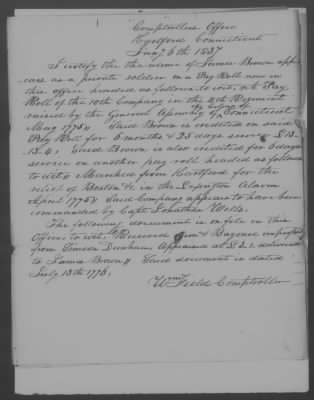 Comptrollers Office
Hartford Connecticut
Jany 6th 1837
I certify the the name of James Brown app-
ears as a private soldier on a Pay Roll now in
this office headed as follows to wit, "A Pay
Roll of the 10th Company in the 4th Regiment
raised by the General Assembly of Connecticut
May 1775" Said Brown is credited on said
Pay Roll for 6 months & 25 days service £13-
13-4, Said Brown is also credited for 6 days
service on another pay roll headed as follows
to wit "Marched from Hartford for the
relief of Boston &c in the Lexington Alarm
April 1775" Said Company appears to have been
commanded by Capt Jonathan Wells.
The following document is on file in this
Office, to wit, "Received Gun & Bayonet impressed
from Simeon Dunham, Appraised at £3.1. delivered
to James Brown" Said document is dated
July 13th 1776,
Wm Field Comptroller